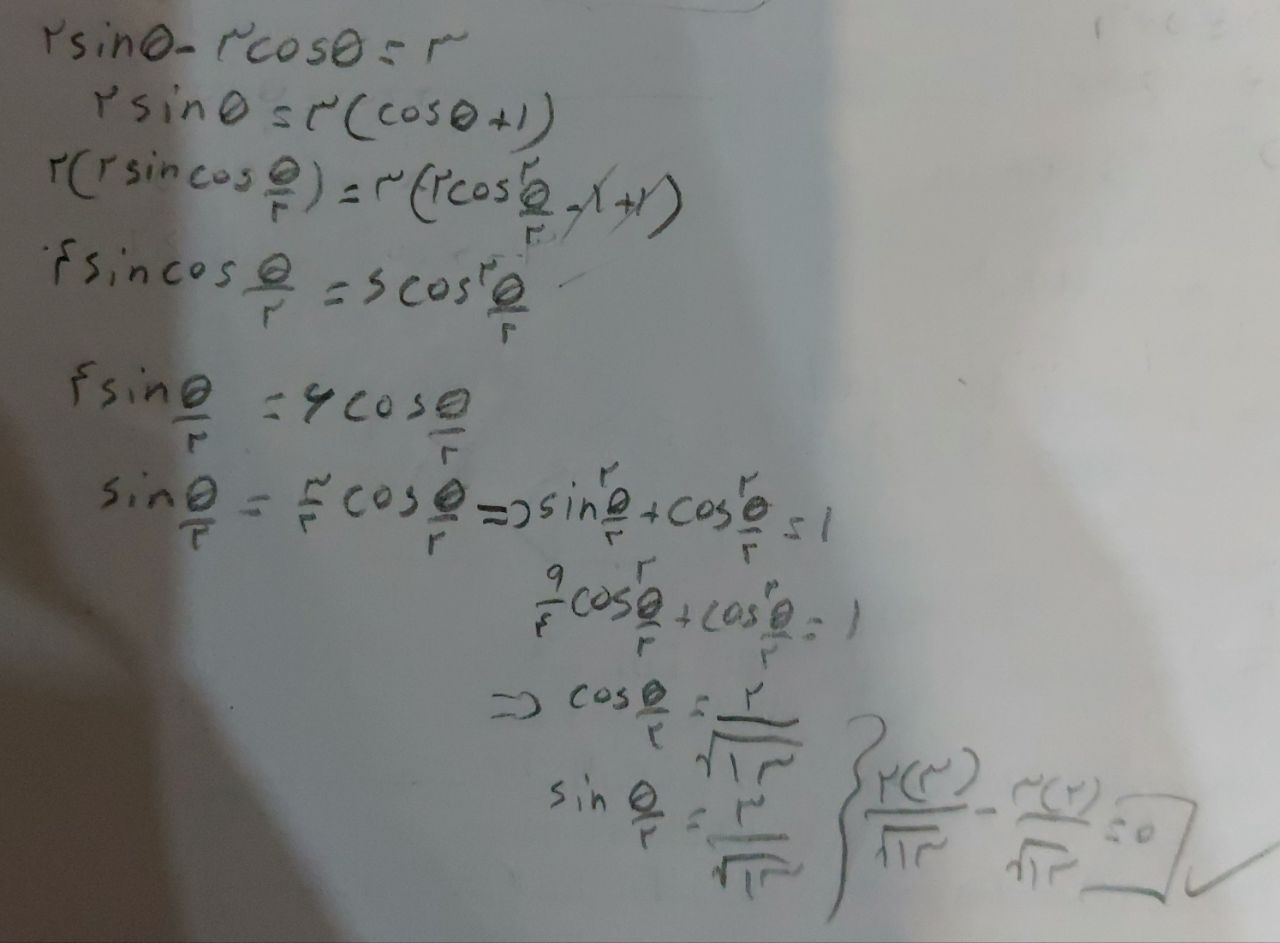 ۲sinθ - ۳cosθ = ۳
۲sinθ = ۳(cosθ+۱)
۲(۲sincos θ/۲) = ۳(۲cos²θ/۲ - ۱ + ۱)
۴sincos θ/۲ = ۶cos²θ/۲
۴sin θ/۲ = ۶cos θ/۲
sin θ/۲ = ۳/۲ cos θ/۲ => sin²θ/۲ + cos²θ/۲ = ۱
۹/۴ cos²θ/۲ + cos²θ/۲ = ۱
=> cos θ/۲ = ۲/√۱۳
sin θ/۲ = ۳/√۱۳ } ۲(۳)/√۱۳ - ۳(۲)/√۱۳ = ۰ ✓